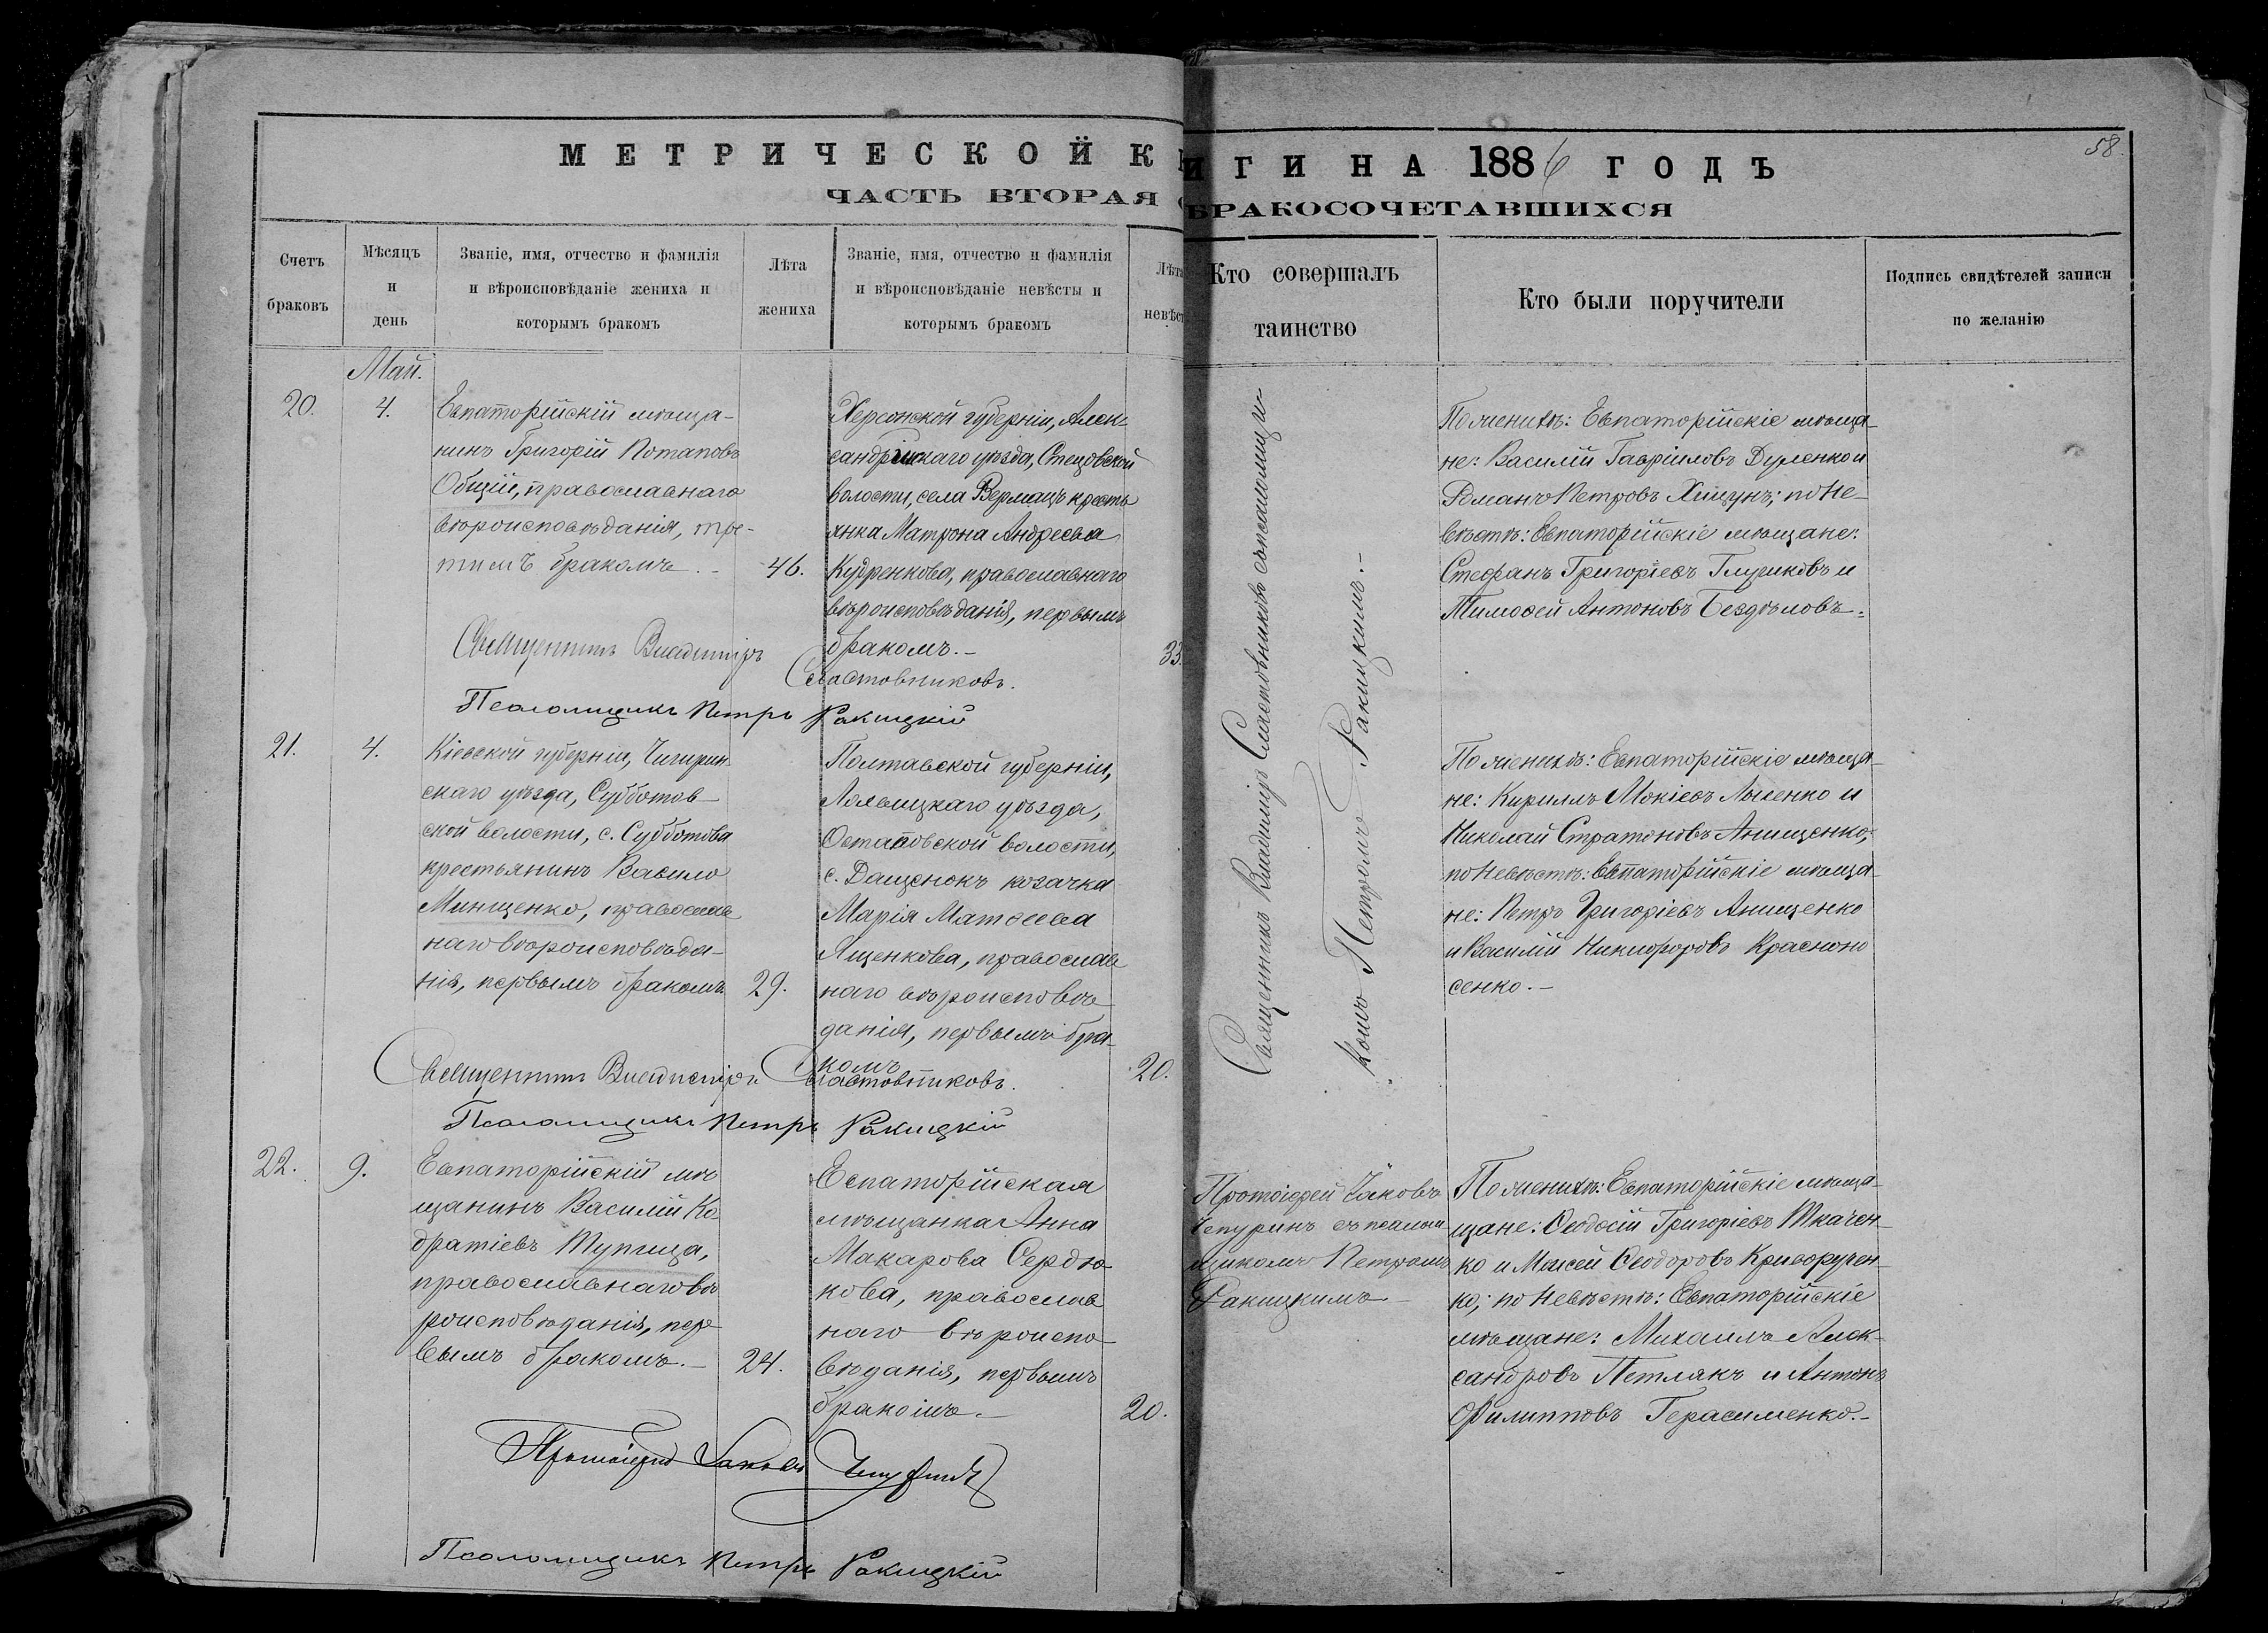 МЕТРИЧЕСКОЙ КНИГИ НА 1886 ГОДЪ
58.
ЧАСТЬ ВТОРАЯ О БРАКОСОЧЕТАВШИХСЯ
Счетъ браковъ
Мѣсяцъ и день
Званіе, имя, отчество и фамилія
и вѣроисповѣданіе жениха и
которымъ бракомъ
Лѣта жениха
Званіе, имя, отчество и фамилія
и вѣроисповѣданіе невѣсты и
которымъ бракомъ
Лѣта невѣст
Кто совершалъ
таинство
Кто были поручители
Подпись свидѣтелей записи
по желанію
Май.
20.
4.
Евпаторійскій мѣща-
нинъ Григорій Потаповъ
Общій, православнаго
вѣроисповѣданія, тре-
тимъ бракомъ. –
46.
Херсонской губерніи, Алек-
сандрійскаго уѣзда, Стецовской
волости, села Вермацъ кресть
янка Матрона Андреева
Кудренкова, православнаго
вѣроисповѣданія, первымъ
бракомъ. –
33.
Священникъ Владиміръ Сластовниковъ.
Псаломщикъ Петръ Ракицкій
Священникъ Владиміръ Сластовниковъ съ псаломщи-
комъ Петромъ Ракицкимъ. –
По женихѣ: Евпаторійскіе мѣща-
не: Василій Гавріиловъ Дуленко и
Романъ Петровъ Хищунъ; по Не-
вѣстѣ: Евпаторійскіе мѣщане:
Стефанъ Григоріевъ Глушковъ и
Тимоѳей Антоновъ Бездѣловъ.
21.
4.
Кіевской губерніи, Чигирин
скаго уѣзда, Субботов-
ской волости, с. Субботова
крестьянинъ Василій
Минщенко, православ
наго вѣроисповѣда-
нія, первымъ бракомъ.
29.
Полтавской губерніи,
Лохвицкаго уѣзда,
Остаповской волости,
с. Дащенокъ козачка
Марія Матѳеева
Ященкова, православ
наго вѣроисповѣ-
данія, первымъ бра-
комъ
20.
Священникъ Владиміръ Сластовниковъ.
Псаломщикъ Петръ Ракицкій
По женихѣ: Евпаторійскіе мѣща-
не: Кириллъ Мокіевъ Лысенко и
Николай Стратоновъ Анищенко;
по Невѣстѣ: Евпаторійскіе мѣща-
не: Петръ Григоріевъ Анищенко
и Василій Никифоровъ Красноно
сенко. –
22.
9.
Евпаторійскій мѣ
щанинъ Василій Ко-
дратіевъ Тупица,
православнаго вѣ
роисповѣданія, пер
вымъ бракомъ. –
24.
Евпаторійская
мѣщанка Анна
Макарова Сердю-
кова, православ
наго вѣроиспо-
вѣданія, первымъ
бракомъ. –
20.
Протоіерей Іаковъ Чепуринъ
Псаломщикъ Петръ Ракицкій
Протоіерей Іаковъ
Чепуринъ съ псалом
щикомъ Петромъ
Ракицкимъ –
По женихѣ: Евпаторійскіе мѣща-
щане: Ѳеодосій Григоріевъ Ткачен-
ко и Моисей Ѳеодоровъ Криворучен-
ко; по Невѣстѣ: Евпаторійскіе
мѣщане: Михаилъ Алек-
сандровъ Петлякъ и Антонъ
Филипповъ Герасименко. –